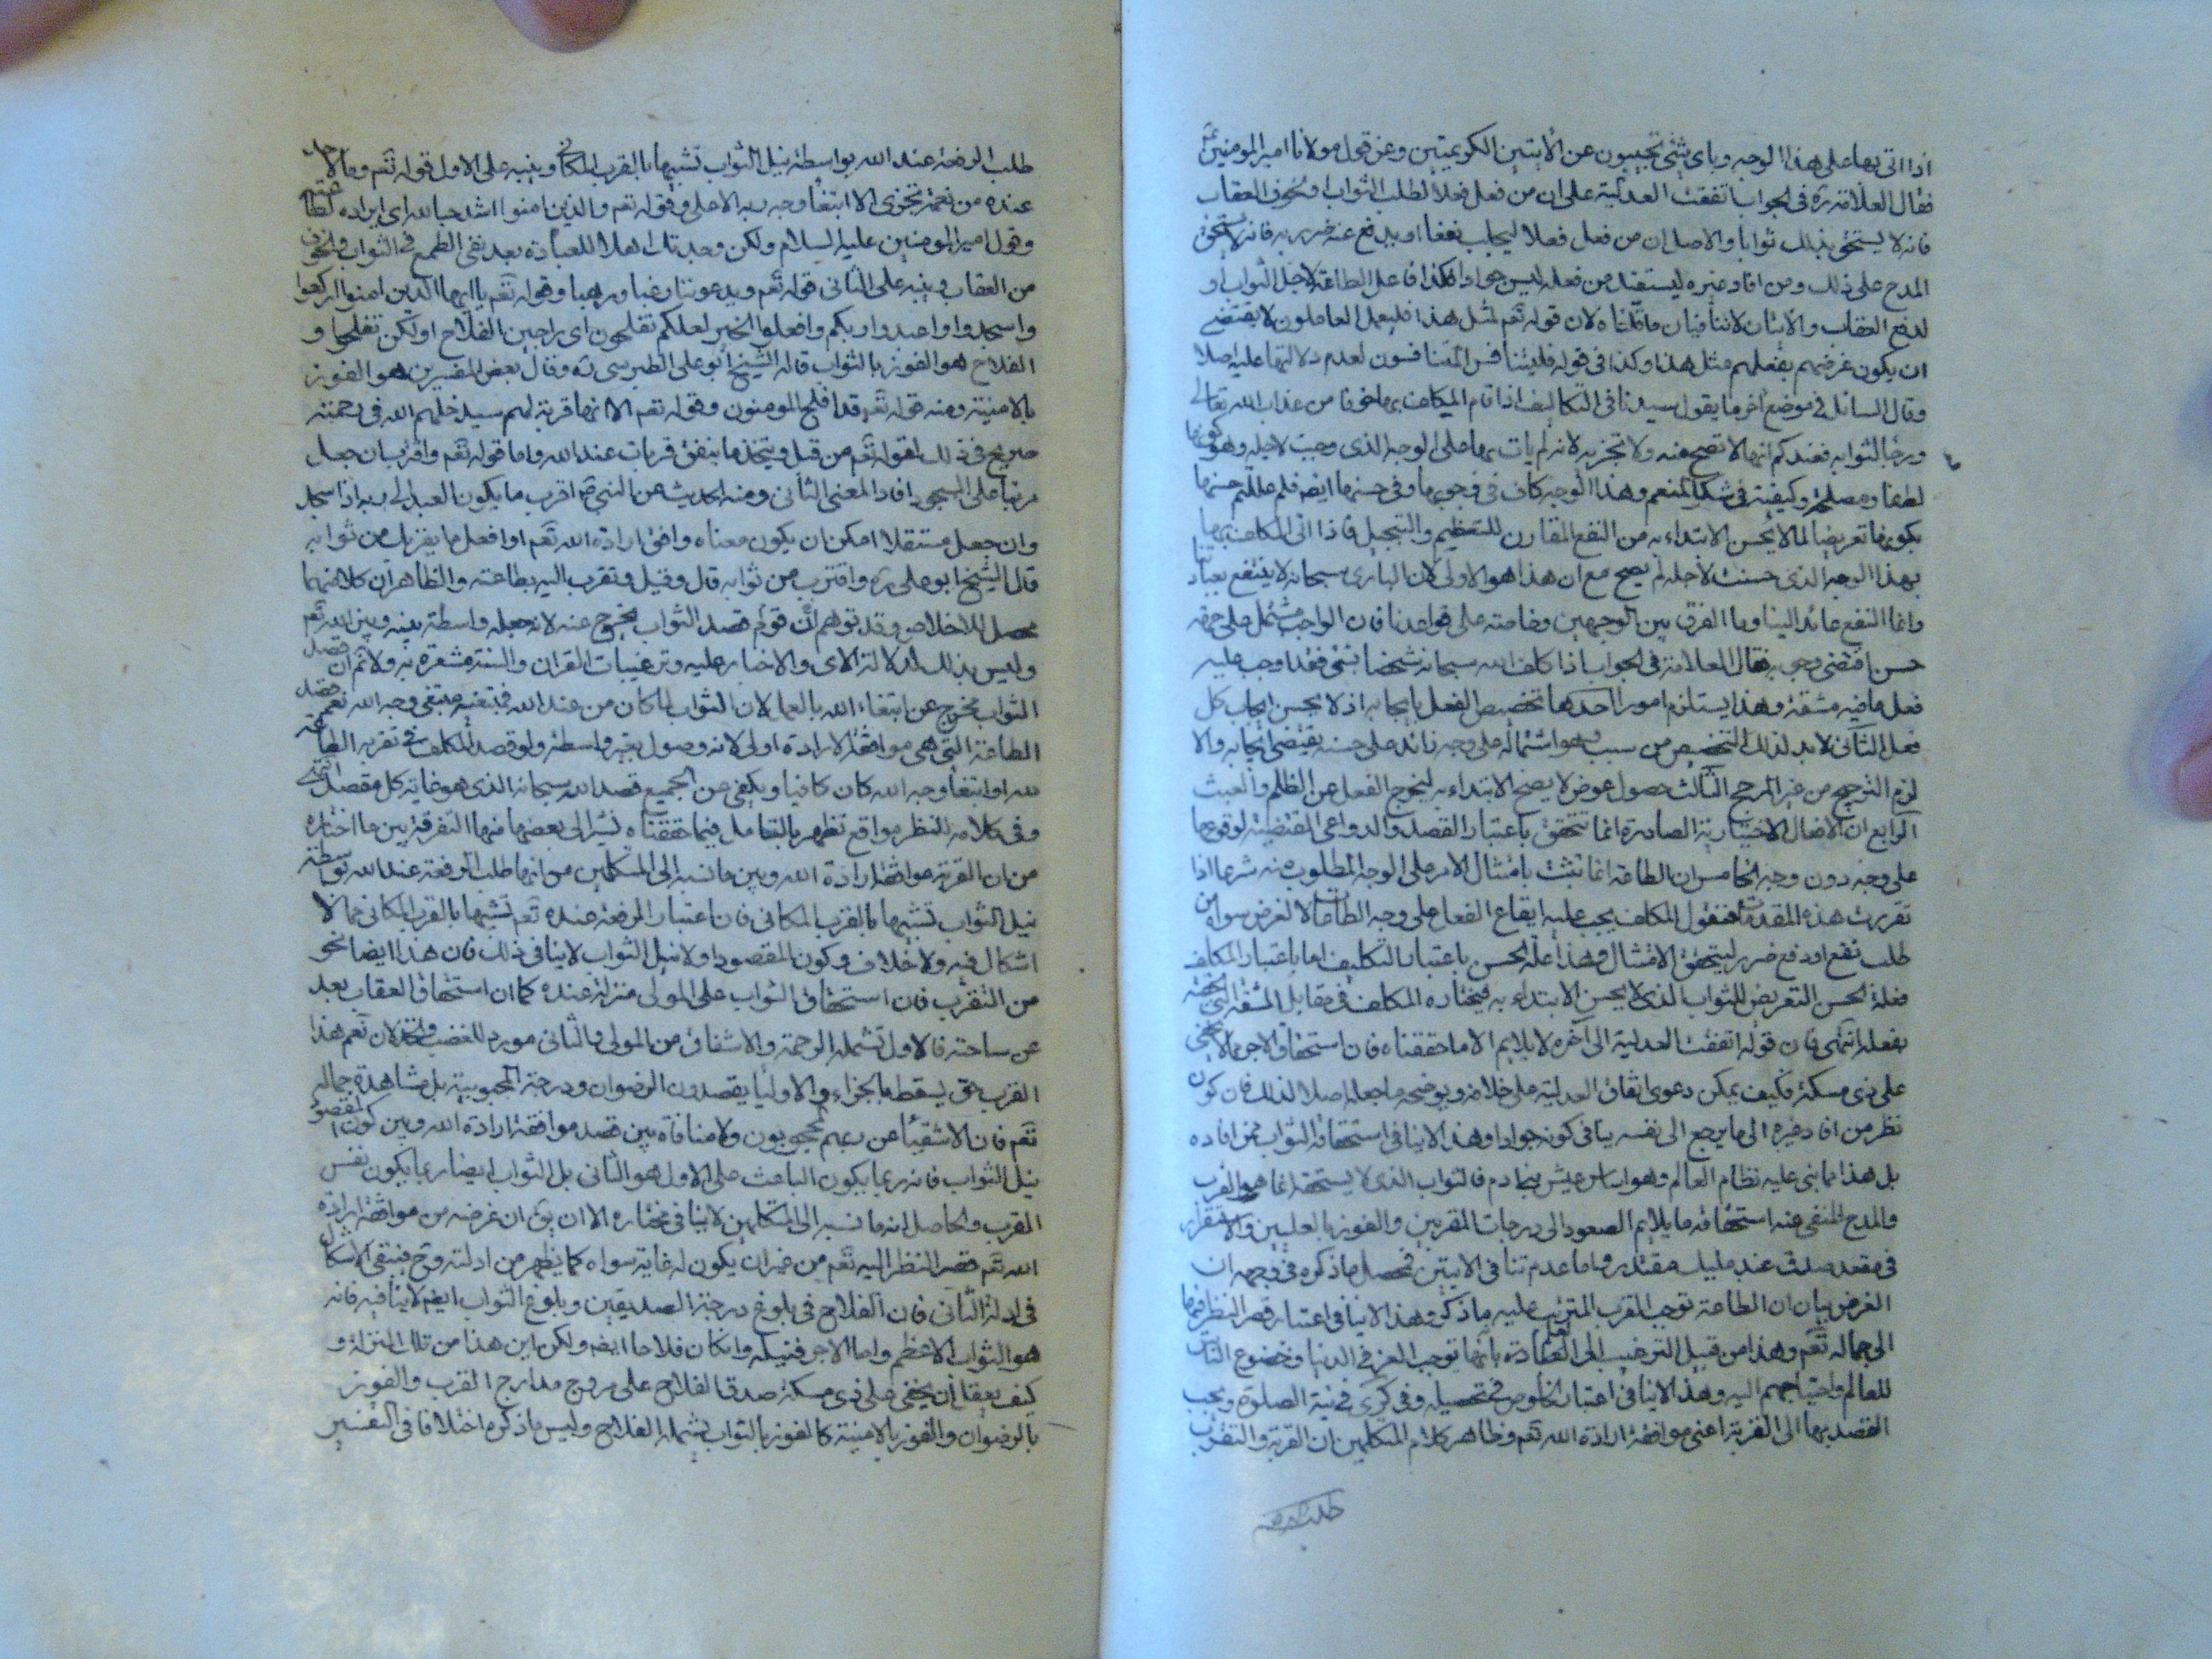 اذا اتى بها على هذا الوجه وباى شئ تجيبون عن الآيتين الكريمتين وعن قول مولانا امير المومنين ع
فقال العلامة ره فى الجواب اتفقت العدلية على ان من فعل فعلا لطلب الثواب او لخوف العقاب
فانه لا يستحق بذلك ثوابا والاصل ان من فعل فعلا ليجلب نفعا او يدفع عنه ضررا به فانه لا يستحق
المدح على ذلك ومن افاد غيره ليستفيد من فعله ليس جوادا فكذا فاعل الطاعة لاجل الثواب او
لدفع العقاب والآيتان لا تنافيان ما قلناه لان قوله تعم لمثل هذا فليعمل العاملون لا يقتضى
ان يكون غرضهم بفعلهم مثل هذا وكذا فى قوله فليتنافس المتنافسون لعدم دلالتها عليه اصلا
وقال السائل فى موضع آخر ما يقول سيدنا فى التكاليف اذا قام المكلف بها خوفا من عذاب الله تعالى
ورجاء لثوابه فعندكم انها لا تصح منه ولا تجزيه لانه لم يات بها على الوجه الذى وجبت لاجله وهو كونها
لطفا ومصلحة وكيفية فى شكر المنعم وهذا الوجه كاف فى وجوبها وفى حسنها ايضم فلم عللتم حسنها
بكونها تعريضا لما لا يحسن الابتداء به من النفع المقارن للتعظيم والتبجيل فاذا اتى المكلف بها
بهذا الوجه الذى حسنت لاجله لم يصح مع ان هذا هو الاولى لان البارى سبحانه لا ينتفع بعبادتنا
وانما النفع عائد الينا وما الفرق بين الوجهين وخاصة على قواعدنا فان الواجب مشتمل على جهة
حسن اقتضى وجوبه فقال العلامة فى الجواب اذا كلف الله سبحانه شخصا بشئ فقد اوجب عليه
فعل ما فيه مشقة وهذا يستلزم امورا احدها تخصيص الفعل بايجابه اذ لا يحسن ايجاب كل
فعل الثانى لا بد لذلك التخصيص من سبب وهو اشتماله على وجه زائد على حسنه يقتضى ايجابه والا
لزم الترجيح من غير المرجح الثالث حصول عوض لا يصح الابتداء به ليخرج الفعل عن الظلم والعبث
الرابع ان الافعال الاختيارية الصادرة انما تتحقق باعتبار القصد والدواعى المقتضية لوقوعها
على وجه دون وجه الخامس ان الطاعة انما تثبت بامتثال الامر على الوجه المطلوب منه شرعا اذا
تقررت هذه المقدمات فنقول المكلف يجب عليه ايقاع الفعل على وجه الطاعة لا لغرض سواه من
طلب نفع او دفع ضرر ليتحقق الامتثال وهذا علة الحسن باعتبار التكليف اما باعتبار المكلف
فعلة الحسن التعريض للثواب الذى لا يحسن الابتداء به فيختاره المكلف فى مقابل المشقة التى تلحقه
بفعله انتهى فان قوله اتفقت العدلية الى آخره لا يلايم الا ما حققناه فان استحقاق الاجر مما لا يخفى
على ذى مسكة فكيف يمكن دعوى اتفاق العدلية على خلافه ويوضحه ما جعله اصلا لذلك فان كون
نظر من افاد غيره الى ما يرجع الى نفسه ينافى كونه جوادا وهذا لا ينافى استحقاقه الثواب ممن افاده
بل هذا مما بنى عليه نظام العالم وهو اساس عيش بنى آدم فالثواب الذى لا يستحقه انما هو القرب
والمدح المنفى عنه استحقاقه ما يلايم الصعود الى درجات المقربين والفوز بالعليين والاستقرار
فى مقعد صدق عند مليك مقتدر واما عدم تنافى الآيتين فحصل ما ذكره فى وجهه ان
الغرض بيان ان الطاعة توجب القرب المترتب عليه ما ذكر وهذا لا ينافى اعتبار قصر النظر فيها
الى جماله تعم وهذا من قبيل الترغيب الى العبادة بانها توجب العز فى الدنيا وخضوع الناس
للعالم واحتياجهم اليه وهذا لا ينافى اعتبار الخلوص فى تحصيله وفى كرى فى نية الصلوة ويجب
القصد بها الى القربة اعنى موافقة ارادة الله تعم وظاهر كلام المتكلمين ان القربة والتقرب
طلب الرفعة
طلب الرفعة عند الله بواسطة نيل الثواب تشبيها بالقرب المكانى وينبه على الاول قوله تعم وما لاحد
عنده من نعمة تجزى الا ابتغاء وجه ربه الاعلى وقوله تعم والذين امنوا اشد حبا لله اى ارادة لطاعته
وقول امير المومنين عليه السلام ولكن وجدتك اهلا للعبادة بعد نفى الطمع فى الثواب والخوف
من العقاب وينبه على الثانى قوله تعم ويدعوننا رغبا ورهبا وقوله تعم يا ايها الذين امنوا اركعوا
واسجدوا واعبدوا ربكم وافعلوا الخير لعلكم تفلحون اى راجين الفلاح او لكى تفلحوا و
الفلاح هو الفوز بالثواب قاله الشيخ ابو على الطبرسى ره وقال بعض المفسرين هو الفوز
بالامنية ومنه قوله تعم قد افلح المومنون وقوله تعم الا انها قربة لهم سيدخلهم الله فى رحمته
صريح فى ذلك لقوله تعم من قبل ويتخذ ما ينفق قربات عند الله واما قوله تعم واقترب ان جعل
مرتبا على السجود افاد المعنى الثانى ومنه الحديث عن النبى ص اقرب ما يكون العبد الى ربه اذا سجد
وان جعل مستقلا امكن ان يكون معناه وافق ارادة الله تعم او افعل ما يقربك من ثوابه
قال الشيخ ابو على ره واقترب من ثوابه قال وقيل وتقرب اليه بطاعته والظاهر ان كلا منهما
محصل للاخلاص وقد توهم ان قوم قصد الثواب يخرج عنه لانه جعله واسطة بينه وبين الله تعم
وليس بذلك لدلالة الاى والاخبار عليه وترغيبات القران والسنة مشعرة به ولا نم ان قصد
الثواب مخرج عن ابتغاء الله بالعمل لان الثواب لما كان من عند الله فمبتغيه مبتغى وجه الله نعم قصد
الطاعة التى هى موافقة الارادة اولى لانه وصول بغير واسطة ولو قصد المكلف فى تقربه الطاعة
لله او ابتغاء وجه الله كان كافيا ويكفى عن الجميع قصد الله سبحانه الذى هو غاية كل مقصد انتهى
وفى كلامه للنظر مواقع تظهر بالتامل فيما حققناه نشير الى بعضها منها التفرقة بين ما اختاره
من ان القربة موافقة ارادة الله وبين ما نسبه الى المتكلمين من انها طلب الرفعة عند الله بواسطة
نيل الثواب تشبيها بالقرب المكانى فان اعتبار الرفعة عنده تعم تشبيها بالقرب المكانى مما لا
اشكال فيه ولا خلاف وكون المقصود اولا نيل الثواب لا ينافى ذلك فان هذا ايضا نحو
من التقرب فان استحقاق الثواب على المولى منزلة عنده كما ان استحقاق العقاب بعد
عن ساحته فالاول تشمله الرحمة والاشفاق من المولى والثانى مورد للغضب والخذلان نعم هذا
القرب حق يسقط بالجزاء والاوليا يقصدون الرضوان ودرجة المحبوبية بل مشاهدة جماله
تعم فان الاشقياء عن ربهم محجوبون ولا منافاة بين قصد موافقة ارادة الله وبين كون المقصود
نيل الثواب فانه ربما يكون الباعث على الاول هو الثانى بل الثواب ايضا ربما يكون نفس
القرب والحاصل انه ما نسبه الى المتكلمين لا ينافى مختاره الا ان يق ان غرضه من موافقة ارادة
الله تعم قصر النظر اليه تعم من غير ان يكون له غاية سواه كما يظهر من ادلته وح فينتفى الاشكال
فى ادلة الثانى فان الفلاح فى بلوغ درجة الصديقين وبلوغ الثواب ايضم لا ينافيه فانه
هو الثواب الاعظم واما الاجر فنيله وان كان فلاحا ايضم ولكن اين هذا من تلك المنزلة و
كيف يعقل ان يخفى على ذى مسكة صدق الفلاح على عروج مدارج القرب والفوز
بالرضوان والفوز بالامنية كالفوز بالثواب يشمله الفلاح وليس ما ذكره اختلافا فى التفسير